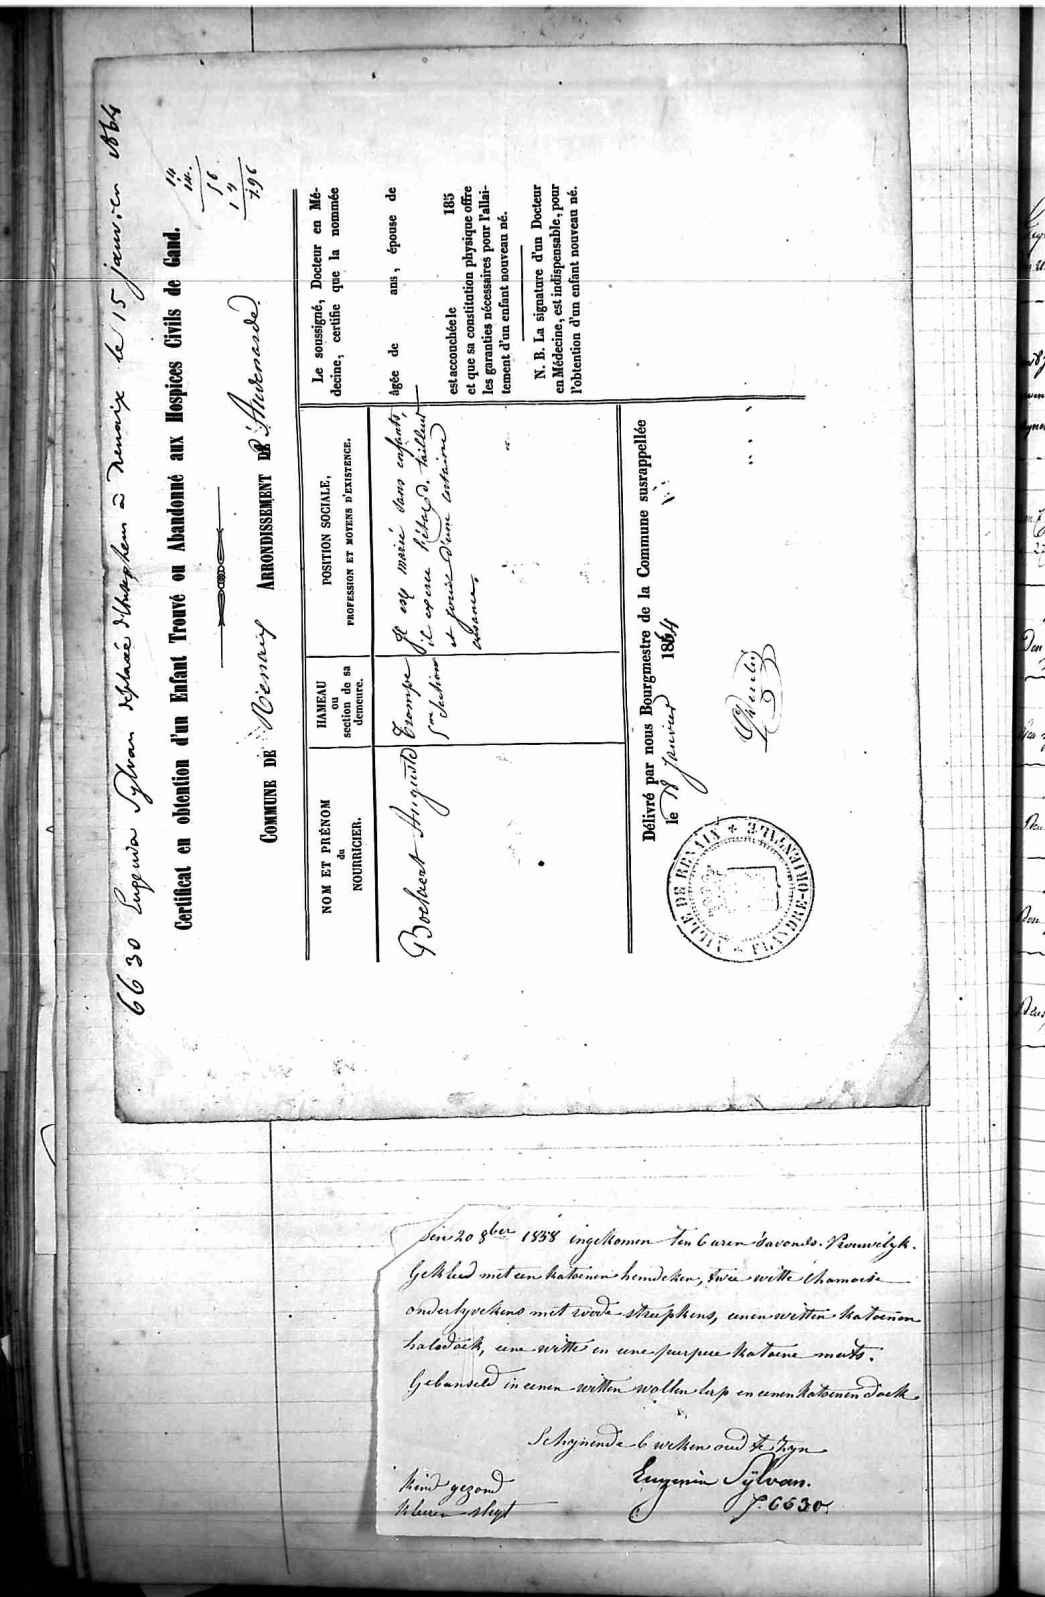 6630 Eugenia Sylvan déplacée d'Audeghem à Renaix le 15 janvier 1864
Certificat en obtention d'un Enfant Trouvé ou Abandonné aux Hospices Civils de Gand.
14
14
56
14
196
COMMUNE DE Renaix ARRONDISSEMENT DE d'Audenarde
NOM ET PRÉNOM
du
NOURRICIER.
HAMEAU
ou
section de sa
demeure.
POSITION SOCIALE,
PROFESSION ET MOYENS D'EXISTENCE.
Boekaert Auguste
Trompe
5me Section
Il est marié sans enfants,
il exerce l'état de tailleur
et jouit d'une certaine
aisance.
Le soussigné, Docteur en Mé-
decine, certifie que la nommée
âgée de ans, épouse de
est accouchée le 185
et que sa constitution physique offre
les garanties nécessaires pour l'allai-
tement d'un enfant nouveau né.
N. B. La signature d'un Docteur
en Médecine, est indispensable, pour
l'obtention d'un enfant nouveau né.
Délivré par nous Bourgmestre de la Commune susrappellée
le Janvier 1864
VILLE DE RENAIX
FLANDRE-ORIENTALE
Den 20 8ber 1858 ingekomen ten 6 uren s'avonds. Vrouwelyk.
Gekleed met een katoenen hemdeken, twee witte chamoise
onderlyvekens met roode streepkens, eenen witten katoenen
halsdoek, eene witte en eene purpere katoene muts.
Gebunseld in eenen witten wollen lap en eenen katoenen doek
Schynende 6 weken oud te zyn
Kind gezond
kleeren slegt
Eugenia Sylvan.
6630